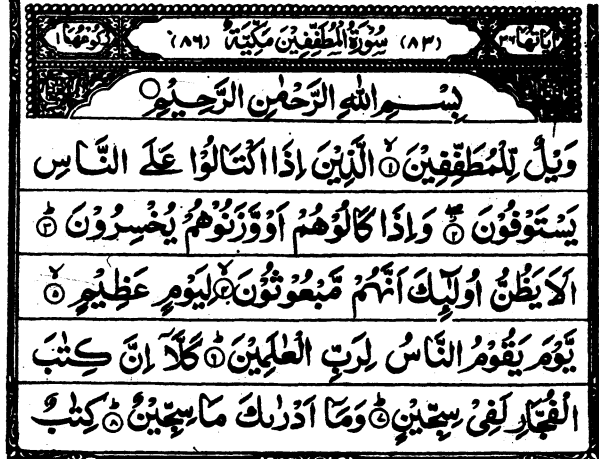 اٰیاتها ٣٦ (٨٣) سُوْرَةُ الْمُطَفِّفِیْنَ مَکِّیَّةٌ (٨٦) رکوعها ١
بِسْمِ اللهِ الرَّحْمٰنِ الرَّحِیْمِ ○
وَیْلٌ لِّلْمُطَفِّفِیْنَ ۙ﴿١﴾ الَّذِیْنَ اِذَا اکْتَالُوْا عَلَی النَّاسِ
یَسْتَوْفُوْنَ ۖ﴿٢﴾ وَاِذَا کَالُوْهُمْ اَوْ وَّزَنُوْهُمْ یُخْسِرُوْنَ ؕ﴿٣﴾
اَلَا یَظُنُّ اُولٰٓئِكَ اَنَّهُمْ مَّبْعُوْثُوْنَ ۙ﴿٤﴾ لِیَوْمٍ عَظِیْمٍ ۙ﴿٥﴾
یَّوْمَ یَقُوْمُ النَّاسُ لِرَبِّ الْعٰلَمِیْنَ ؕ﴿٦﴾ کَلَّاۤ اِنَّ کِتٰبَ
الْفُجَّارِ لَفِیْ سِجِّیْنٍ ؕ﴿٧﴾ وَمَاۤ اَدْرٰىكَ مَا سِجِّیْنٌ ؕ﴿٨﴾ کِتٰبٌ